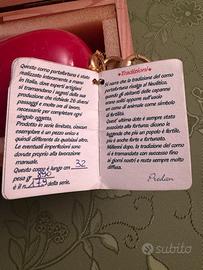 Questo corno portafortuna è stato
realizzato interamente a mano
in Italia, dove esperti artigiani
si tramandano i segreti della sua
produzione che richiede 25 diversi
passaggi e molte ore di lavoro
necessarie per completare ogni
singolo oggetto.
Prodotto in serie limitata, ciascun
esemplare è un pezzo unico e
quindi differente da ogni altro.
Le eventuali imperfezioni sono
dovute proprio alla lavorazione
manuale.
Questo corno è lungo cm 30
pesa gr 890
è il n° 179 della serie.
Tradizioni
Si narra che la tradizione del corno
portafortuna risalga al Neolitico,
quando gli abitanti delle capanne
erano soliti appendere sull'uscio
un corno di animale come simbolo
di fertilità.
Quest'ultima date è sempre stata
associata alla fortuna: dicono le
leggende che più un popolo è fertile,
più è anche forte e fortunato.
La tradizione è stata poi
tramandata con successo fino
ai giorni nostri e resta sempre molto
diffusa.
subito